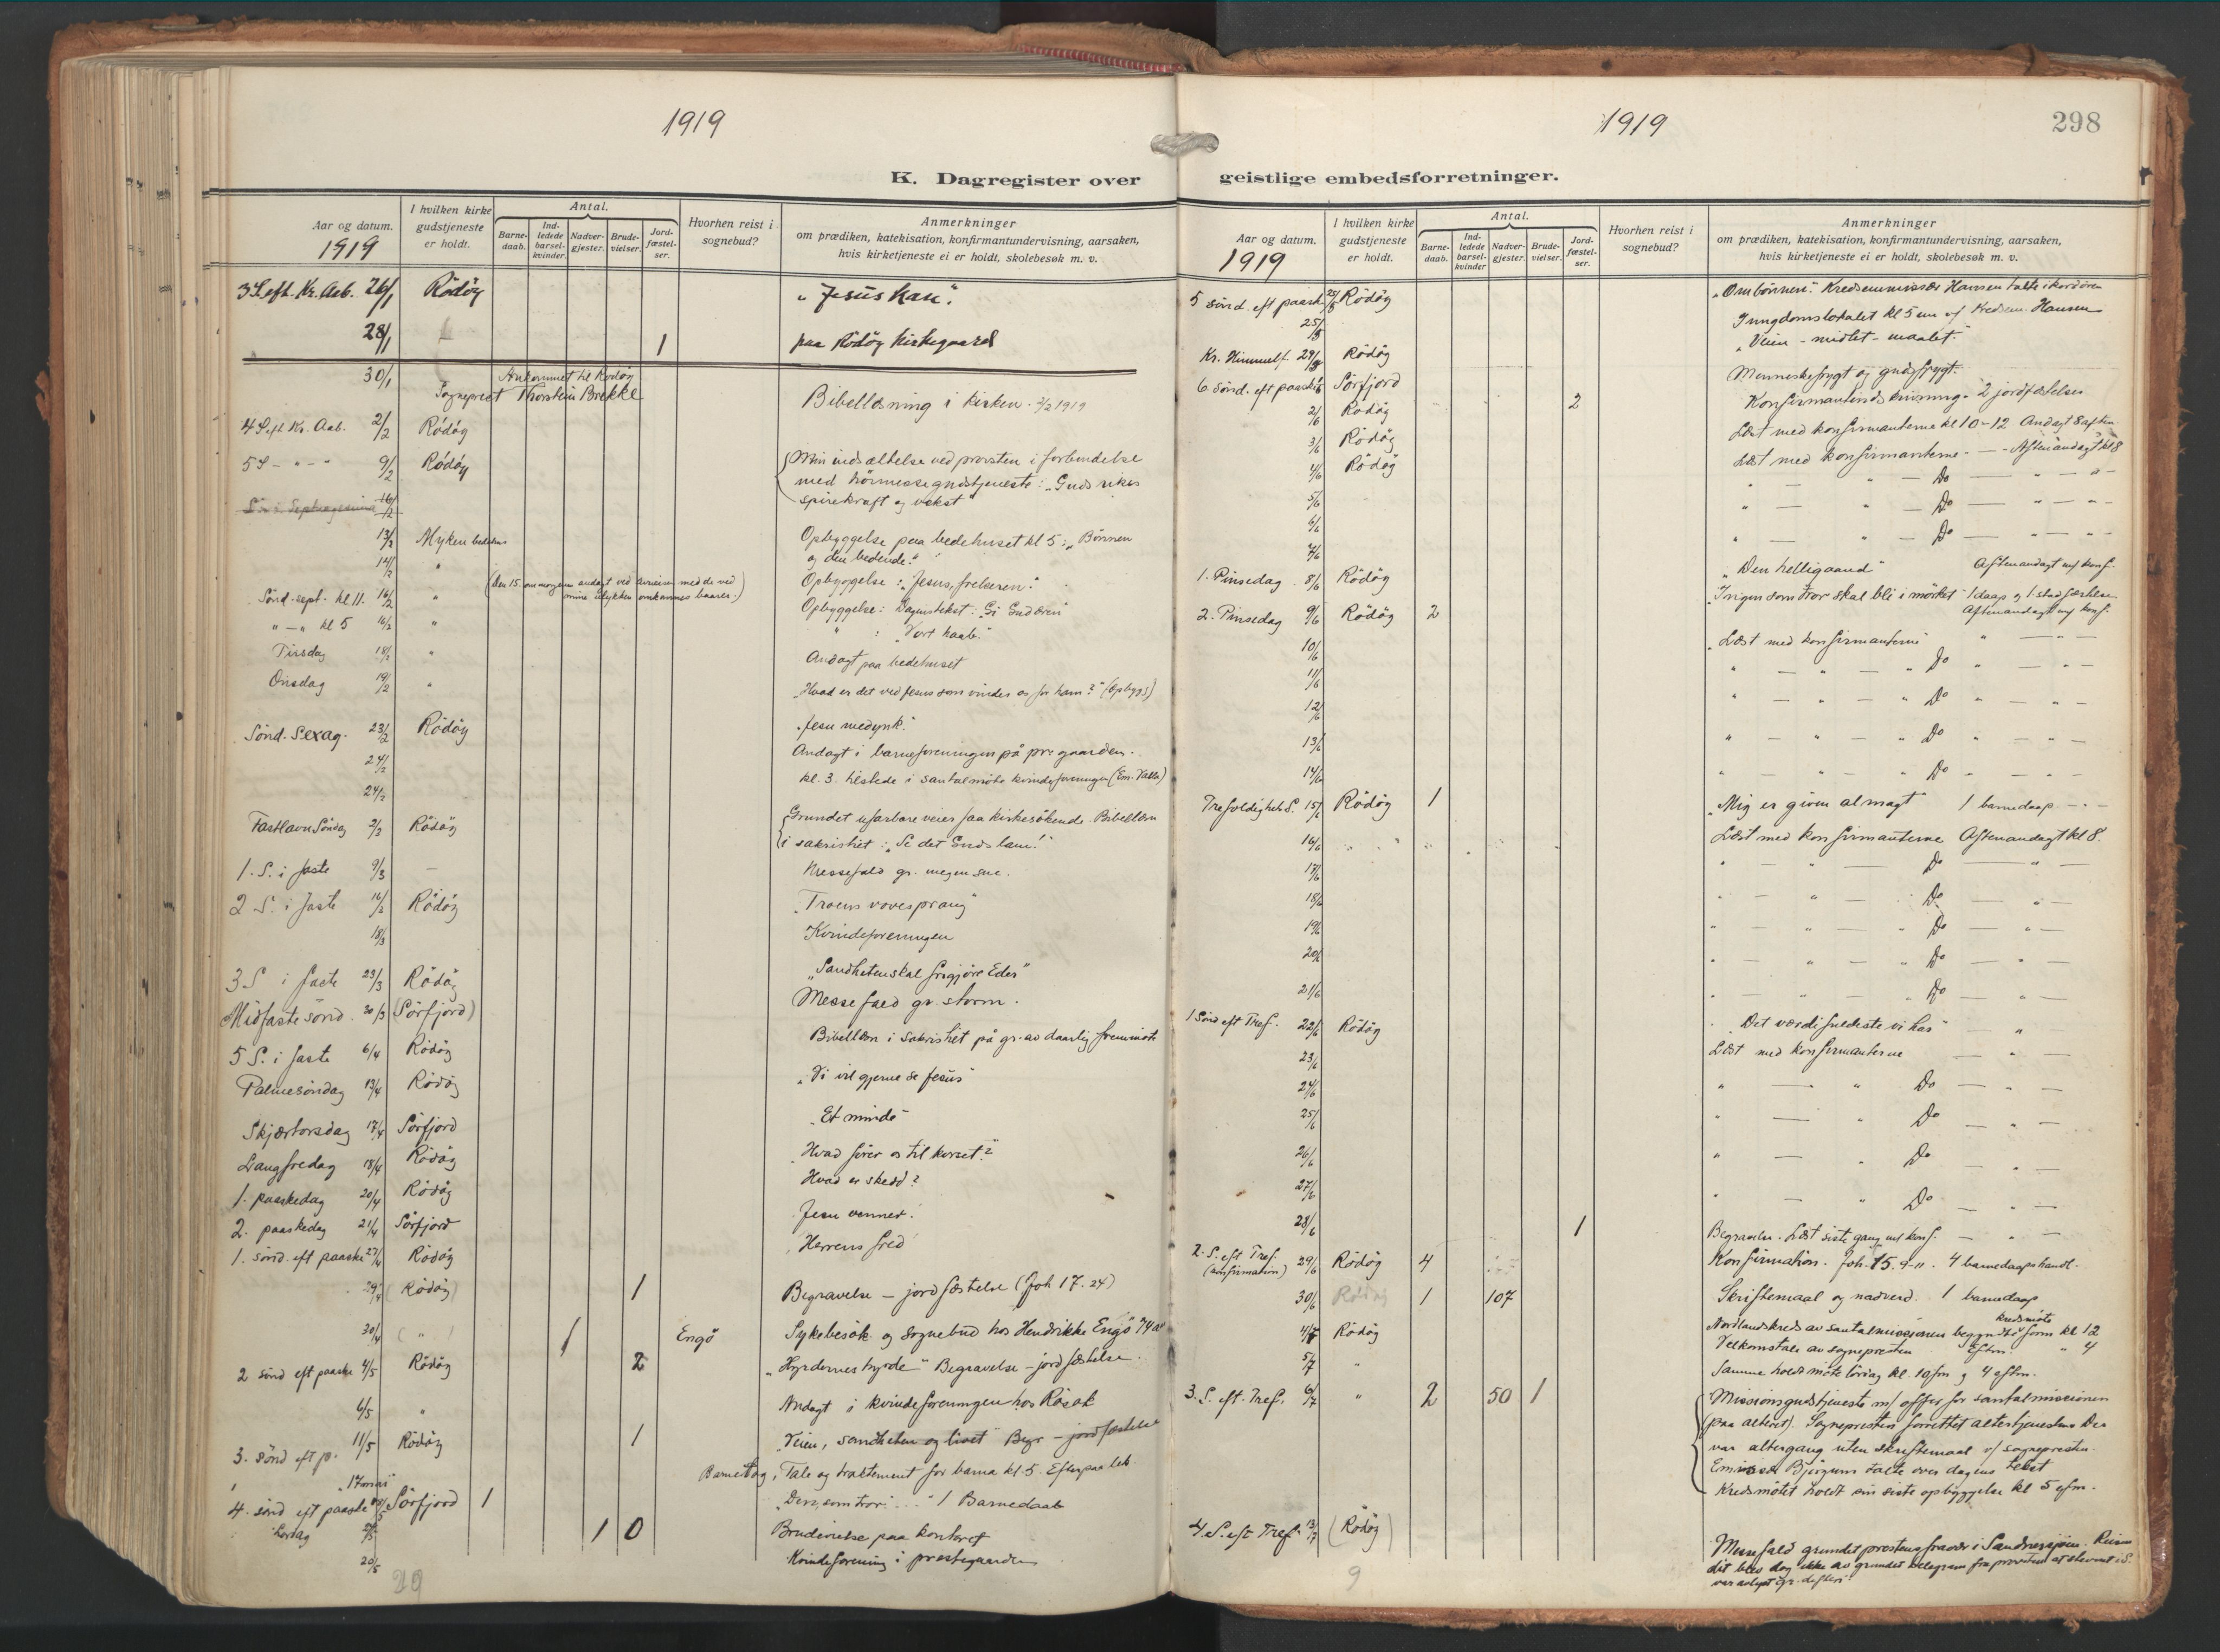 1919
K. Dagregister over
Aar og datum.
1919
I hvilken kirke gudstjeneste er holdt.
Antal.
Barne-daab.
Ind-ledede barsel-kvinder.
Nadver-gjester.
Brude-vielser.
Jord-fæstel-ser.
Hvorhen reist i sognebud?
Anmerkninger
om prædiken, katekisation, konfirmantundervisning, aarsaken,
hvis kirketjeneste ei er holdt, skolebesøk m. v.
3 S. eft. Kr. Aab. 26/1 Rödöy "Jesus kan".
28/1 1 paa Rödöy Kirkegaard
30/1 Ankommet til Rödöy
Sogneprest Thorstein Brekke
Bibellæsning i kirken 2/2 1919
4 S. eft Kr. Aab. 2/2 Rödöy
5 S - " - " 9/2 Rödöy Min indsættelse ved provsten i forbindelse
med höimessegudstjeneste: "Guds rikes
spirekraft og vekst"
16/2
13/2 Myken bedehus Opbyggelse paa bedehuset kl 5: "Bönnen
og den bedende."
14/2 " Opbyggelse: "Jesus, frelseren."
Sönd. sept. kl 11. 16/2 " Opbyggelse:
" — " kl 5 16/2 " " : "Vort haab."
Tirsdag 18/2 " Andagt paa bedehuset
Onsdag 19/2 " "Hvad er det ved Jesus som vinder os for ham?" (Opbygg)
Sönd. Sexag. 23/2 Rödöy "Jesu medynk".
24/2 Andagt i barneforeningen på pr.gaarden.
24/2 kl. 3. tilstede i santalmöte kvindeforeningen
Fastelavn Söndag 2/3 Rödöy Grundet ufarbare veier faa kirkesökende. Bibellæsn
i sakristiet: "Se det Guds lam!"
1. S. i faste 9/3 — Messefald gr. megen sne.
2 S. i faste 16/3 Rödöy "Troens vovesprang"
18/3 Kvindeforeningen
3 S i faste 23/3 Rödöy "Sandheten skal frigjöre Eder"
Midfaste sönd. 30/3 (Sörfjord) Messefald gr. storm.
5 S. i faste 6/4 Rödöy Bibellæsn i sakristiet på gr. av daarlig fremmöte
Palmesöndag 13/4 Rödöy "Vi vil gjerne se Jesus"
Skjærtorsdag 17/4 Sörfjord "Et minde"
Langfredag 18/4 Rödöy "Hvad förer os til korset?"
1. paaskedag 20/4 Rödöy Hvad er skedd?
2. paaskedag 21/4 Sörfjord Jesu venner.
1. sönd. eft paaske 27/4 Rödöy "Herrens fred"
29/4 (Rödöy) 1 Begravelse — jordfæstelse (Joh 17. 24)
30/4 ( " ) 1 Engö Sykebesök og sognebud hos Hendrikke Engö 74 år
2 sönd eft paaske 4/5 Rödöy 2 "Hyrdernes hyrde" Begravelse - jordfæstelse.
6/5 " Andagt i kvindeforeningen hos Rösok
3. sönd eft p. 11/5 Rödöy 1 "Veien, sandheten og livet" Begr - jordfæstelse
"17 mai" Barnetog, Tale og traktement for barna kl. 5. Efterpaa lek.
4. sönd eft paaske 18/5 Sörfjord 1 "Den, som tror..." 1 Barnedaab
Lördag 1 0 Brudevielse paa kontoret
20/5 Kvindeforening i prestegaarden
1919
298
geistlige embedsforretninger.
Aar og datum.
1919
I hvilken kirke gudstjeneste er holdt.
Antal.
Barne-daab.
Ind-ledede barsel-kvinder
Nadver-gjester.
Brude-vielser.
Jord-fæstel-ser.
Hvorhen reist i sognebud?
Anmerkninger
om prædiken, katekisation, konfirmantundervisning, aarsaken,
hvis kirketjeneste ei er holdt, skolebesøk m. v.
5 sönd. eft paaske 25/5 Rödöy "Om bönnen". Kredsemissær Hansen talte i kordören
25/5 I ungdomslokalet kl 5 em v/ Kredsem. Hansen
"Veien - midlet - maalet."
Kr. Himmelf. 29/5 Rödöy Menneskefrygt og gudsfrygt.
6. sönd. eft paaske 1/6 Sörfjord 2 Konfirmantindskrivning. 2 jordfæstelser
2/6 Rödöy Læst med konfirmanterne kl 10-12 Andagt 8 aften
3/6 Rödöy Læst med konfirmanterne - — - Aftenandagt kl 8
4/6 Rödöy " — " — Do — " — " -
5/6 " — " — Do — " — " -
6/6 " — " — Do — " — " -
7/6
1. Pinsedag 8/6 Rödöy "Den helligaand" Aftenandagt m/ konf.
2. Pinsedag 9/6 Rödöy 2 "Ingen som tror skal bli i mörket"
Aftenandagt m/ konf.
10/6 Læst med konfirmanterne " — " —
11/6 " — " — " Do " — " —
12/6 " — " — " Do " — " —
13/6 " — " — " Do " — " —
14/6 " — " — " Do " — " —
Trefoldighets S. 15/6 Rödöy 1 "Mig er given al magt 1 barnedaap — " —
16/6 Læst med konfirmanterne Aftenandagt kl 8.
17/6 " — " — Do — " —
18/6 " — " — Do — " —
19/6 " — " — Do — " —
20/6 " — " — Do — " —
21/6 " — " — Do — " —
1 Sönd eft Tref. 22/6 Rödöy "Det værdifuldeste vi har" "
23/6 Læst med konfirmanterne — " —
24/6 " — " Do — " —
25/6 " — " Do — " —
26/6 " — " Do — " —
27/6 " — " Do — " —
28/6 1 Begravelse. Læst siste gang m/ konf. — " —
2. S. eft Tref. (konfirmation) 29/6 Rödöy 4 Konfirmation. Joh. 15. 9-11. 4 barnedaapshandl.
30/6 Rödöy 1 107 Skriftemaal og nadverd. 1 barnedaap
4/7 Rödöy Nordlandskreds av santalmissionen begyndte kredsmöte form kl 12
Velkomstale av sognepresten Eftm. " 4
5/7 " Samme holdt möte lördag kl. 10 fm og 4 eftm.
3. S. eft. Tref. 6/7 " 2 50 1 Missionsgudstjeneste m/ offer for santalmissionen
(paa alteret). Sognepresten forrettet altertjenesten. Der
var altergang uten skriftemaal v/ sognepresten.
Emissær talte over dagens tekst
Kredsmötet holdt sin siste opbyggelse kl 5 efm.
4. S. eft Tref. 13/7 (Rödöy) Messefald grundet prestens fravær i Sandnessjöen. Reisen
dit blev dog ikke av grundet telegram fra provsten at stevnet i S.
var avlyst
29
9